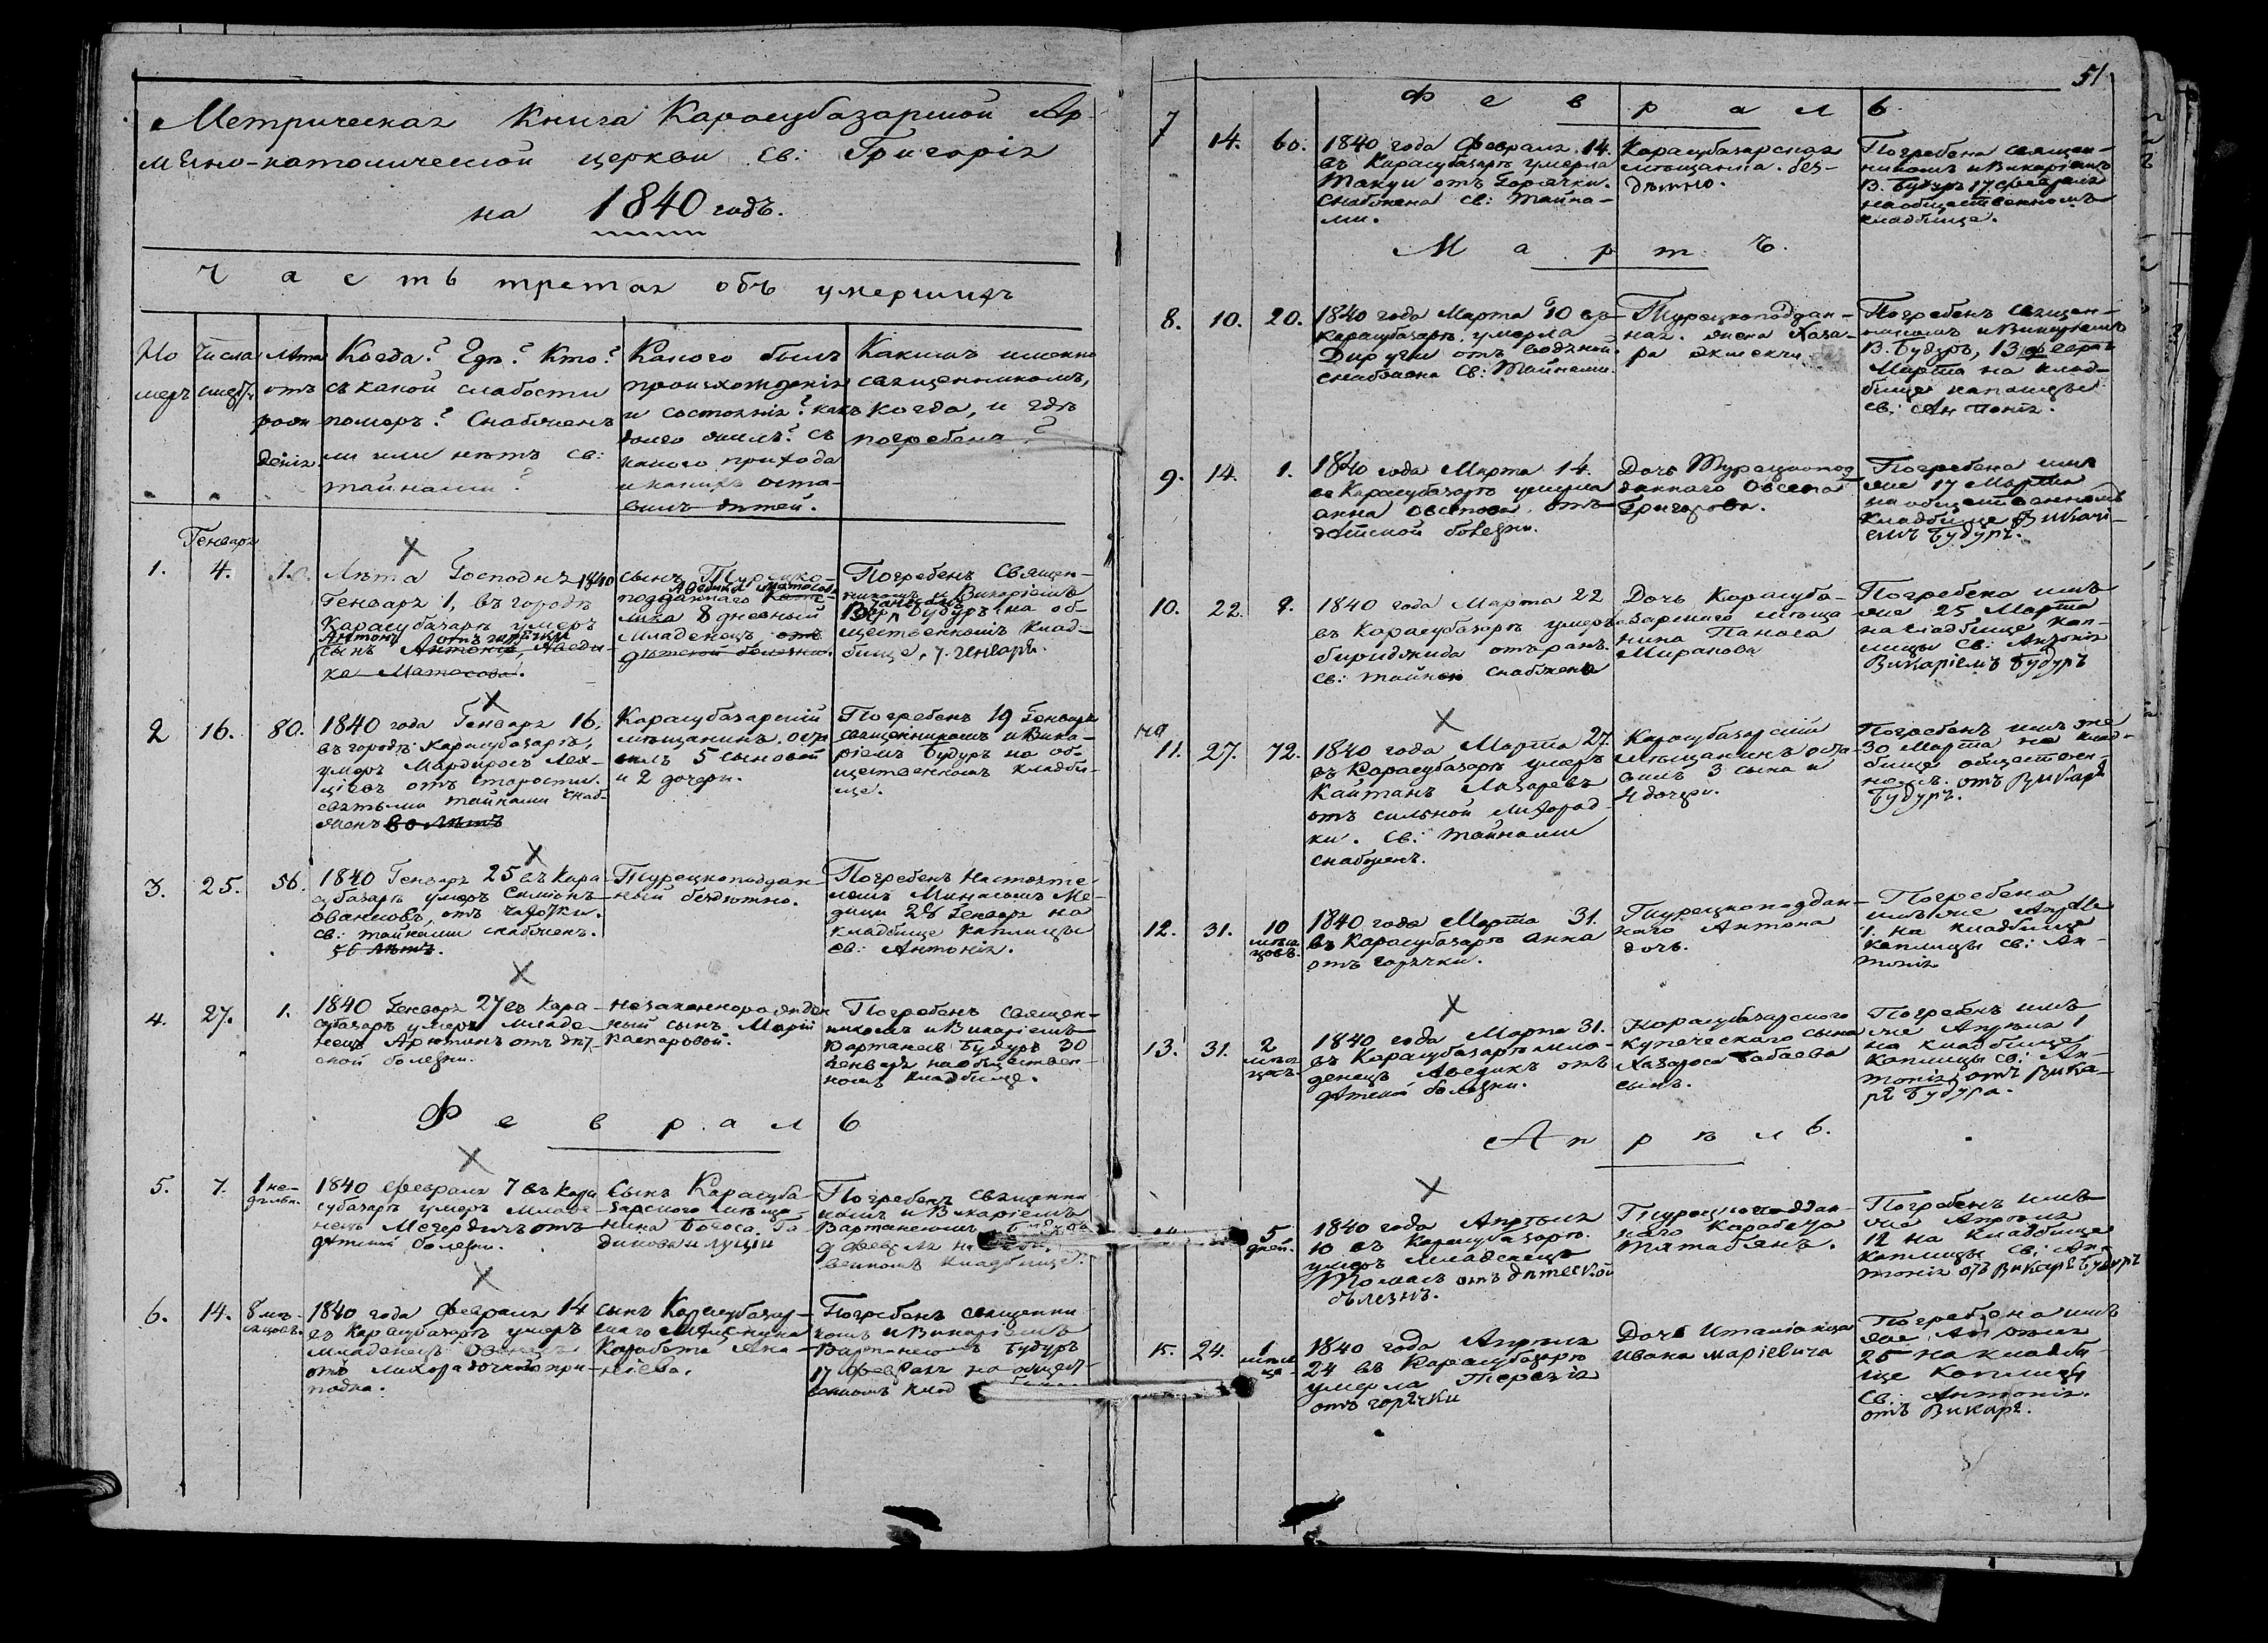 Метрическая Книга Карасубазарской Ар-
мяно-католической церкви Св: Григорія
на 1840 годъ.
Часть третая объ умершихъ
Но
меръ
Числа
смерт.
Лета
отъ
рож
денія.
Когда? Гдѣ? Кто?
съ какой слабости
померъ? Снабженъ
ли или нѣтъ св:
тайнами?
Какого былъ
происхожденія
и состоянія? какъ
долго жилъ? съ
какого прихода
и какихъ оста-
вилъ дѣтей.
Какимъ именно
священникомъ,
когда, и гдѣ
погребенъ?
Генварь
1.
4.
Лѣта Господня 1840
Генваря 1, въ городѣ
Карасубазарѣ умеръ
Антонъ отъ горячки
сынъ Антонія, Аведи-
ка Матосова.
сынъ Турецко-
Аведика Матосова
подданнаго
8 дневный
младенецъ, отъ
дѣтской болезни.
Погребенъ Священ-
никомъ и Викаріемъ
Будуръ на об-
щественномъ клад-
бище, 7. Января.
2
16.
80.
1840 года Генваря 16,
въ городѣ Карасубазарѣ,
умеръ Мардиросъ Лех-
ціевъ отъ старости.
святыми тайнами снаб-
женъ
Карасубазарскій
мѣщанинъ. оста
вилъ 5 сыновей
и 2 дочери.
Погребенъ 19 Генваря
священникомъ и Вика-
ріемъ Будуръ на об-
щественномъ кладби-
ще.
3.
25.
56.
1840 Генваря 25 въ Кара-
субазарѣ умеръ Симіонъ
Ованесовъ, отъ чахотки.
св: тайнами снабженъ.
56 лѣтъ.
Турецкоподдан-
ный бездѣтно.
Погребенъ Настояте-
лемъ Минасомъ Ме-
дици 28 Генваря на
кладбище каплицы
св: Антонія.
4.
27.
1.
1840 Генваря 27 въ Кара-
субазарѣ умеръ младе-
нецъ Арютинъ отъ дѣт-
ской болезни.
незаконнорожден
ный сынъ Маріи
Каспаровой.
Погребенъ священ-
никомъ и Викаріемъ
Вартанесъ Будуръ 30
Генваря на обществен-
номъ кладбище.
Февраль
5.
7.
1 не-
дѣльн.
1840 Февраля 7 въ Кара
субазарѣ умеръ младе-
нецъ Мегердичъ отъ
дѣтской болезни.
Сынъ Карасуба
зарскаго мѣща-
нина Богоса Га-
динова и Луціи
Погребенъ священни
комъ и Викаріемъ
Вартанесомъ Будуръ
9 Февраля на
венномъ кладбище.
6.
14.
8 мѣ-
сяцовъ.
1840 года Февраля 14
въ Карасубазарѣ умеръ
младенецъ Ованесъ
отъ лихорадочной при-
падка.
сынъ Карасубазар-
скаго Мѣщанина
Карабета Ана-
ніева.
Погребенъ священни
комъ и Викаріемъ
Вартанесомъ Будуръ
17 Февраля на общест-
венномъ клад
51
Февраль
7
14.
60.
1840 года Февраля 14.
въ Карасубазарѣ умерла
Такуи отъ Горячки.
Снабжена св: Тайна-
ми.
Карасубазарская
мѣщанка. без-
дѣтно.
Погребена священ-
никомъ и Викаріемъ
В. Будуръ 17 февраля
на общественномъ
кладбище.
Мартъ.
8.
10.
20.
1840 года Марта 10 въ
Карасубазарѣ, умерла
Дируги отъ водяной.
снабжена св: Тайнами.
Турецкоподдан-
ная. жена Хаза-
ра экмекчи.
Погребенъ священ-
никомъ и Викаріемъ
В. Будуръ, 13 февраля
Марта на клад-
бище каплицы
св: Антонія.
9.
14.
1.
1840 года Марта 14.
въ Карасубазарѣ умерла
Анна Овсепова отъ
дѣтской болезни.
Дочь Турецкопод
даннаго Овсепа
Григорова.
Погребена имъ
же 17 Марта
на общественномъ
кладбище Викарі-
емъ Будуръ.
10.
22.
9.
1840 года Марта 22
въ Карасубазарѣ умерла
бириджида отъ ранъ.
св: тайною снабжена
Дочь Карасуба-
зарскаго мѣща
нина Паноса
Миранова
Погребена имъ
же 25 Марта
на кладбище кап-
лицы Св: Антонія
Викаріемъ Будуръ
11.
27.
72.
1840 года Марта 27.
въ Карасубазарѣ умеръ
Кайтанъ Лазаревъ
отъ сильной лихорад-
ки. св: тайнами
снабженъ.
Карасубазарскій
мѣщанинъ оста-
вилъ 3 сына и
4 дочери.
Погребенъ имъ же
30 Марта на клад-
бище обществен-
номъ. отъ Викарія
Будуръ.
12.
31.
10
мѣся
цовъ.
1840 года Марта 31.
въ Карасубазарѣ Анна
отъ горячки.
Турецкоподдан-
наго Антона
дочь.
Погребена
имъ же Апрѣля
1. на кладбище
каплицы св: Ан-
тонія
13.
31.
2
мѣся
цевъ.
1840 года Марта 31.
въ Карасубазарѣ мла-
денецъ Аведикъ отъ
дѣтской болезни.
Карасубазарскаго
купеческаго сына
Хазароса Бабаева
сынъ.
Погребенъ имъ
же Апрѣля 1
на кладбище
каплицы св: Ан-
тонія отъ Вика-
рія Будура.
Апрѣль.
5
дней.
1840 года Апрѣля
10 въ Карасубазарѣ.
умеръ младенецъ
Томасъ отъ дѣтеской
бълезнъ.
Турецкоподдан-
наго Карабеда
Тятабянъ.
Погребенъ имъ
же Апрѣля
12 на кладбище
каплицы св: Ан-
тонія отъ Викарія Будуръ
15.
24.
1
мѣся
ца
1840 года Апрѣля
24 въ Карасубазарѣ
умерла Терезія
отъ горячки
Дочь Италіанца
Ивана Маріевича
Погребена имъ
же Апрѣля
25 на кладби-
ще Каплицы
Св: Антонія.
отъ Викарія.